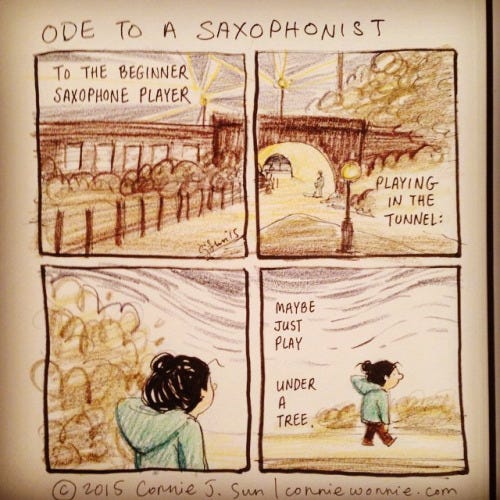 ODE TO A SAXOPHONIST
TO THE BEGINNER
SAXOPHONE PLAYER
PLAYING
IN THE
TUNNEL:
MAYBE
JUST
PLAY
UNDER
A
TREE.
© 2015 Connie J. Sun | conniewonnie.com